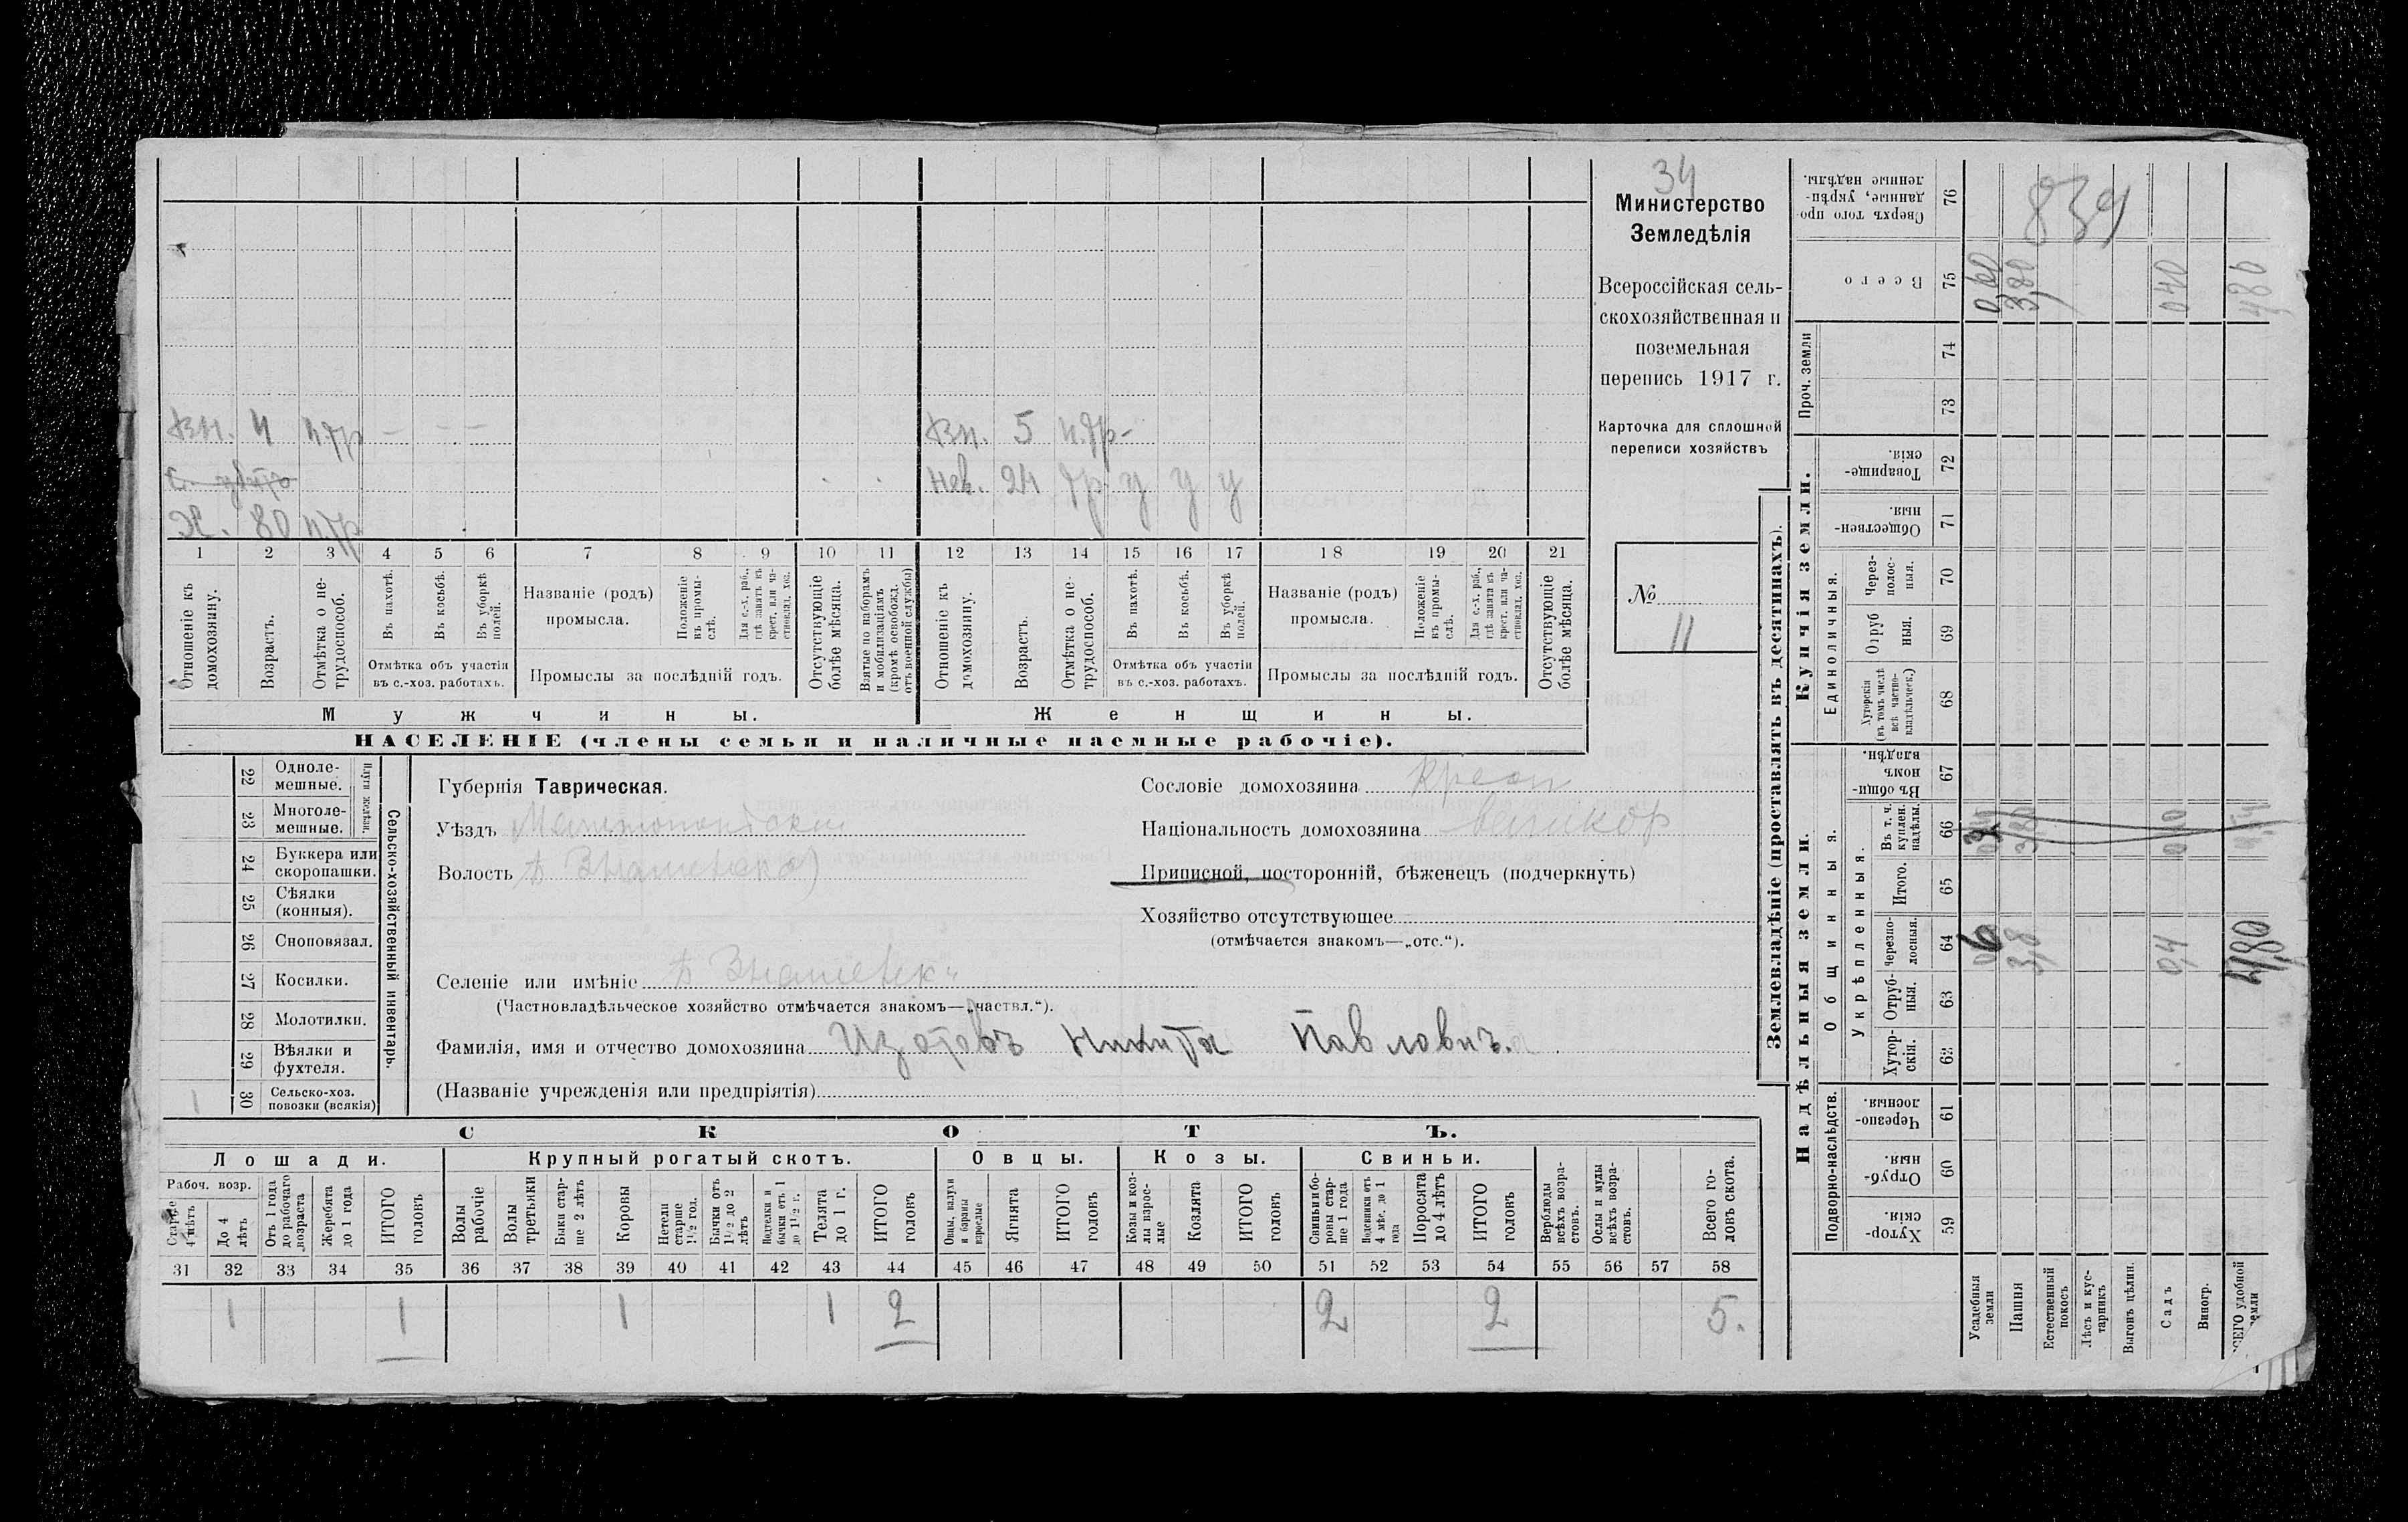 34
Министерство
Земледѣлія
Всероссійская сель-
скохозяйственная и
поземельная
перепись 1917 г.
Карточка для сплошной
переписи хозяйствъ
№
11
Вн. 4 н.тр - - -
Х. 80 н.тр
Вн. 5 н.тр-
нев. 24 тр. у у у
1 2 3 4 5 6 7 8 9 10 11 12 13 14 15 16 17 18 19 20 21
Отношеніе къ домохозяину.
Возрастъ.
Отмѣтка о не-трудоспособ.
Въ пахотѣ.
Въ косьбѣ.
Въ уборкѣ полей.
Отмѣтка объ участіи
въ с.-хоз. работахъ.
Названіе (родъ)
промысла.
Положеніе въ промы-слѣ.
Для с.-х. раб., гдѣ занятъ въ крест. или ча-стновлад. хоз.
Промыслы за послѣдній годъ.
Отсутствующіе болѣе мѣсяца.
Взятые по наборамъ и мобилизаціямъ (кромѣ освобожд. отъ военной службы)
Отношеніе къ домохозяину.
Возрастъ.
Отмѣтка о не-трудоспособ.
Въ пахотѣ.
Въ косьбѣ.
Въ уборкѣ полей.
Отмѣтка объ участіи
въ с.-хоз. работахъ.
Названіе (родъ)
промысла.
Положеніе въ промы-слѣ.
Для с.-х. раб., гдѣ занята въ крест. или ча-стновлад. хоз.
Промыслы за послѣдній годъ.
Отсутствующіе болѣе мѣсяца.
Мужчины.
Женщины.
НАСЕЛЕНІЕ (члены семьи и наличные наемные рабочіе).
22 Одноле-мешные.
23 Многоле-мешные.
Плуги желѣзн.
24 Буккера или скоропашки.
25 Сѣялки (конныя).
26 Сноповязал.
27 Косилки.
28 Молотилки.
29 Вѣялки и фухтеля.
30 Сельско-хоз. повозки (всякія)
1
Сельско-хозяйственный инвентарь.
Губернія Таврическая.
Уѣздъ Мелитопольскій
Волость Б Знаменска)
Селеніе или имѣніе Б Знаменск
(Частновладѣльческое хозяйство отмѣчается знакомъ—„частвл.“).
Фамилія, имя и отчество домохозяина Изотовъ Никита Павловичъ.
(Названіе учрежденія или предпріятія)
Сословіе домохозяина крест
Національность домохозяина великор
Приписной, посторонній, бѣженецъ (подчеркнуть)
Хозяйство отсутствующее
(отмѣчается знакомъ—„отс.“).
СКОТЪ.
Лошади.
Крупный рогатый скотъ.
Овцы.
Козы.
Свиньи.
Рабоч. возр.
Старше 4 лѣтъ
До 4 лѣтъ
Отъ 1 года до рабочаго возраста
Жеребята до 1 года
ИТОГО головъ
Волы рабочіе
Волы третьяки
Быки стар-ше 2 лѣтъ
Коровы
Нетели старше 1½ год.
Бычки отъ 1½ до 2 лѣтъ
Подтелки и бычки отъ 1 до 1½ г.
Телята до 1 г.
ИТОГО головъ
Овцы, валухи и бараны взрослые
Ягнята
ИТОГО головъ
Козы и коз-лы взрос-лые
Козлята
ИТОГО головъ
Свиньи и бо-ровы стар-ше 1 года
Подсвинки отъ 4 мѣс. до 1 года
Поросята до 4 лѣтъ
ИТОГО головъ
Верблюды всѣхъ возра-стовъ.
Ослы и мулы всѣхъ возра-стовъ.
Всего го-ловъ скота.
31 32 33 34 35 36 37 38 39 40 41 42 43 44 45 46 47 48 49 50 51 52 53 54 55 56 57 58
1 1 1 1 2 2 2 5.
Землевладѣніе (проставлять въ десятинахъ).
Надѣльныя земли.
Купчія земли.
Проч. земли
Подворно-наслѣдств.
Общинныя.
Укрѣпленныя.
Единоличныя.
Сверхъ того про-данные, укрѣп-ленные надѣлы. 76
839
Всего 75
0,60 3,80 0,40 4,80
74
73
Товарище-скія. 72
Обществен-ныя. 71
Через-полос-ныя. 70
Отруб ныя. 69
Хуторскія (въ томъ числѣ всѣ частно-владѣльческ.) 68
Въ общи-номъ владѣн. 67
Въ т. ч. куплен. надѣлы. 66
Итого. 65
Черезпо-лосныя. 64
06 3,8 0,4 4,80
Отруб-ныя. 63
Хутор-скія. 62
Черезпо-лосныя. 61
Отруб-ныя. 60
Хутор-скія. 59
Усадебныя земли
Пашня
Естественный покосъ
Лѣсъ и кус-тарникъ
Выгонъ цѣлин.
Садъ
Виногр.
СЕГО удобной земли